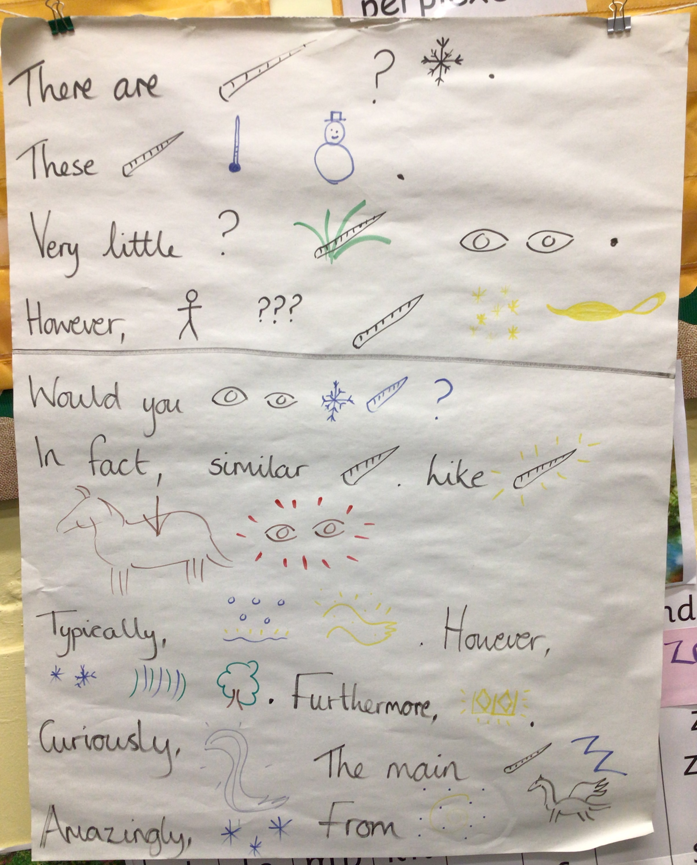 There are ? .
These .
Very little ? .
However, ???
Would you ?
In fact, similar . like
Typically, . However,
. Furthermore, .
Curiously, The main
Amazingly, From